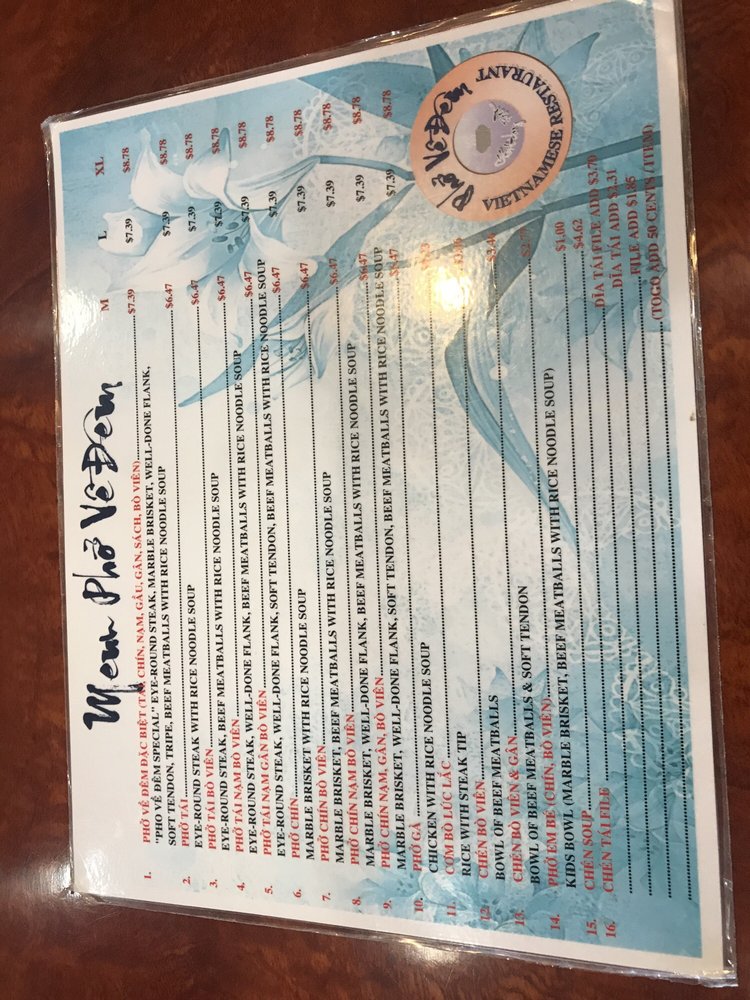 Menu Phở Về Đêm
M L XL
1. PHỞ VỀ ĐÊM ĐẶC BIỆT (TÁI, CHÍN, NẠM, GẦU, GÂN, SÁCH, BÒ VIÊN) $7.39 $7.39 $8.78
"PHO VỀ ĐÊM SPECIAL" EYE-ROUND STEAK, MARBLE BRISKET, WELL-DONE FLANK,
SOFT TENDON, TRIPE, BEEF MEATBALLS WITH RICE NOODLE SOUP
2. PHỞ TÁI $6.47 $7.39 $8.78
EYE-ROUND STEAK WITH RICE NOODLE SOUP
3. PHỞ TÁI BÒ VIÊN $6.47 $7.39 $8.78
EYE-ROUND STEAK, BEEF MEATBALLS WITH RICE NOODLE SOUP
4. PHỞ TÁI NẠM BÒ VIÊN $6.47 $7.39 $8.78
EYE-ROUND STEAK, WELL-DONE FLANK, BEEF MEATBALLS WITH RICE NOODLE SOUP
5. PHỞ TÁI NẠM GÂN BÒ VIÊN $6.47 $7.39 $8.78
EYE-ROUND STEAK, WELL-DONE FLANK, SOFT TENDON, BEEF MEATBALLS WITH RICE NOODLE SOUP
6. PHỞ CHÍN $6.47 $7.39 $8.78
MARBLE BRISKET WITH RICE NOODLE SOUP
7. PHỞ CHÍN BÒ VIÊN $6.47 $7.39 $8.78
MARBLE BRISKET, BEEF MEATBALLS WITH RICE NOODLE SOUP
8. PHỞ CHÍN NẠM BÒ VIÊN $6.47 $7.39 $8.78
MARBLE BRISKET, WELL-DONE FLANK, BEEF MEATBALLS WITH RICE NOODLE SOUP
9. PHỞ CHÍN NẠM, GÂN, BÒ VIÊN $6.47 $7.39 $8.78
MARBLE BRISKET, WELL-DONE FLANK, SOFT TENDON, BEEF MEATBALLS WITH RICE NOODLE SOUP
10. PHỞ GÀ
CHICKEN WITH RICE NOODLE SOUP
11. CƠM BÒ LÚC LẮC
RICE WITH STEAK TIP
12. CHÉN BÒ VIÊN
BOWL OF BEEF MEATBALLS
13. CHÉN BÒ VIÊN & GÂN
BOWL OF BEEF MEATBALLS & SOFT TENDON
14. PHỞ EM BÉ (CHÍN, BÒ VIÊN)
KIDS BOWL (MARBLE BRISKET, BEEF MEATBALLS WITH RICE NOODLE SOUP)
15. CHÉN SOUP $1.00
16. CHÉN TÁI FILE $4.62
DĨA TÁI FILE ADD $3.70
DĨA TÁI ADD $2.31
FILE ADD $1.85
(TOGO ADD 50 CENTS /ITEM)
Phở Về Đêm
VIETNAMESE RESTAURANT